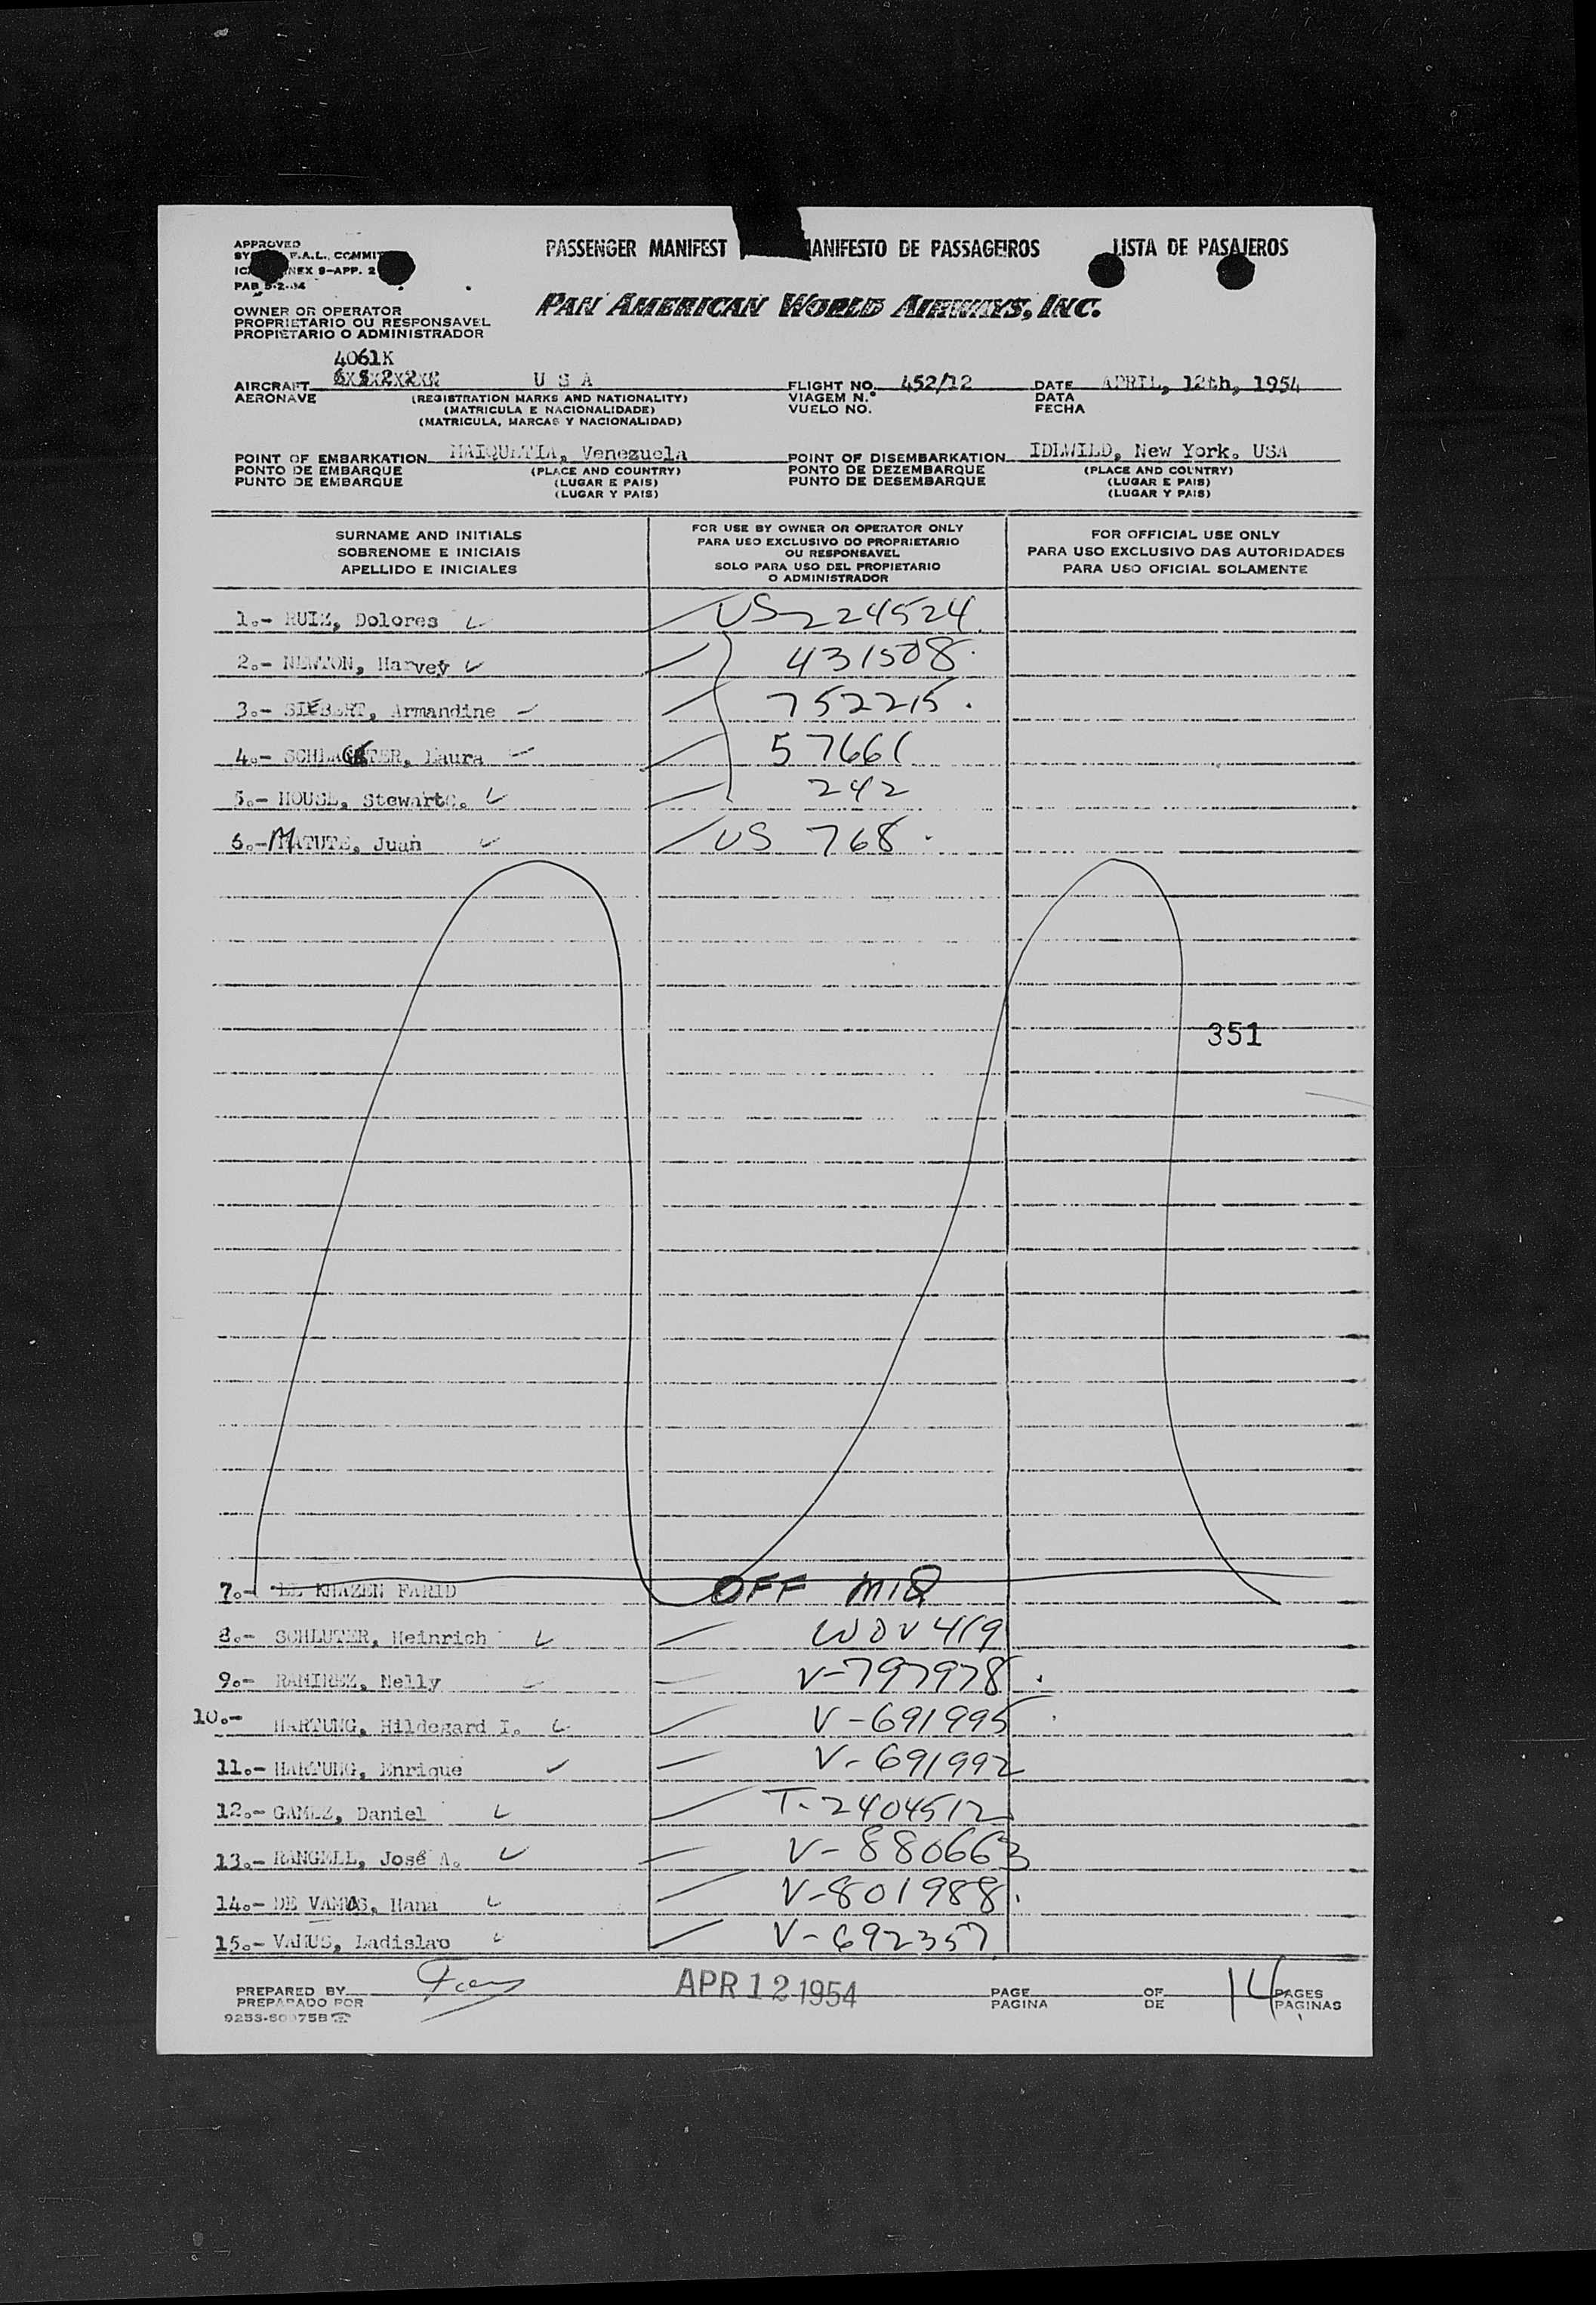 PASSENGER MANIFEST ANIFESTO DE PASSAGEIROS LISTA DE PASAJEROS
APPROVED
F.A.L. COMMIT
NEX 9-APP. 2
PAN AMERICAN WORLD AIRWAYS, INC.
OWNER OR OPERATOR
PROPRIETARIO OU RESPONSAVEL
PROPIETARIO O ADMINISTRADOR
4061K
AIRCRAFT U S A FLIGHT NO. 452/12 DATE APRIL, 12th, 1954
AERONAVE (REGISTRATION MARKS AND NATIONALITY) VIAGEM N.° DATA
(MATRICULA E NACIONALIDADE) VUELO NO. FECHA
(MATRICULA, MARCAS Y NACIONALIDAD)
POINT OF EMBARKATION MAIQUETIA, Venezuela POINT OF DISEMBARKATION IDLWILD, New York. USA
PONTO DE EMBARQUE (PLACE AND COUNTRY) PONTO DE DEZEMBARQUE (PLACE AND COUNTRY)
PUNTO DE EMBARQUE (LUGAR E PAIS) PUNTO DE DESEMBARQUE (LUGAR E PAIS)
(LUGAR Y PAIS) (LUGAR Y PAIS)
SURNAME AND INITIALS
SOBRENOME E INICIAIS
APELLIDO E INICIALES
FOR USE BY OWNER OR OPERATOR ONLY
PARA USO EXCLUSIVO DO PROPRIETARIO
OU RESPONSAVEL
SOLO PARA USO DEL PROPIETARIO
O ADMINISTRADOR
FOR OFFICIAL USE ONLY
PARA USO EXCLUSIVO DAS AUTORIDADES
PARA USO OFICIAL SOLAMENTE
1.- RUIZ, Dolores US 224524
2.- NEWTON, Harvey 431508
3.- SIEBERT, Armandine 752215
4.- Laura 57661
5.- HOUSE, Stewart C. 242
6.- MATUTE, Juan US 768
351
7.- EL KHAZEN FARID OFF MIQ
8.- SCHLUTER, Heinrich WDV 419
9.- RAMIREZ, Nelly V-797978
10.- HARTUNG, Hildegard I. V-691995
11.- HARTUNG, Enrique V-691992
12.- GAMEZ, Daniel T-2404512
13.- RANGELL, José A. V-880663
14.- DE VAMOS, Hana V-801988
15.- VAMUS, Ladislao V-692357
PREPARED BY APR 12 1954 PAGE OF 14 PAGES
PREPARADO POR PAGINA DE PAGINAS